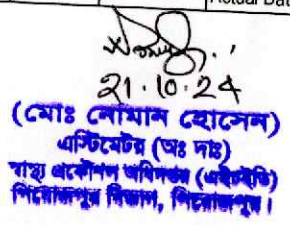 Actual Dat
21.10.24
(মোঃ নোমান হোসেন)
এস্টিমেটর (অঃ দাঃ)
স্বাস্থ্য প্রকৌশল অধিদপ্তর (এইচইডি)
পিরোজপুর বিভাগ, পিরোজপুর।